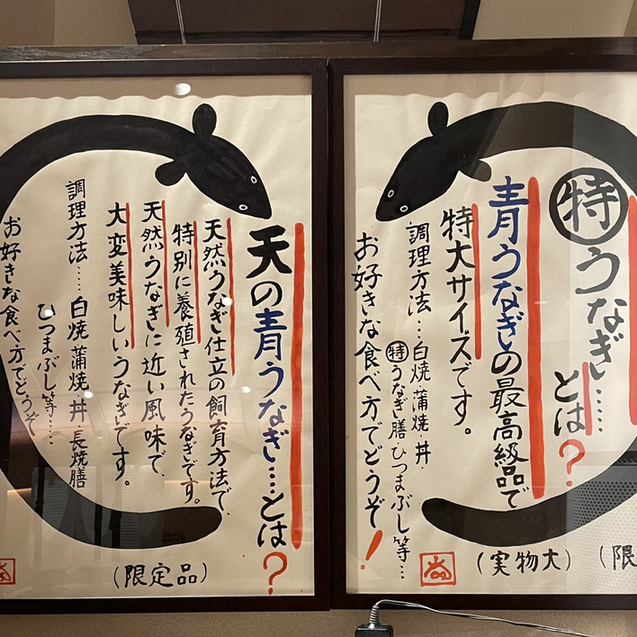 特うなぎ……
とは?
青うなぎの最高級品で
特大サイズです。
調理方法…白焼 蒲焼 丼
特うなぎ膳 ひつまぶし等…
お好きな食べ方でどうぞ!
(実物大)
(限
天の青うなぎ…とは?
天然うなぎ仕立の飼育方法で、
特別に養殖されたうなぎです。
天然うなぎに近い風味で、
大変美味しいうなぎです。
調理方法……白焼 蒲焼 丼 長焼膳
ひつまぶし等…
お好きな食べ方でどうぞ
(限定品)